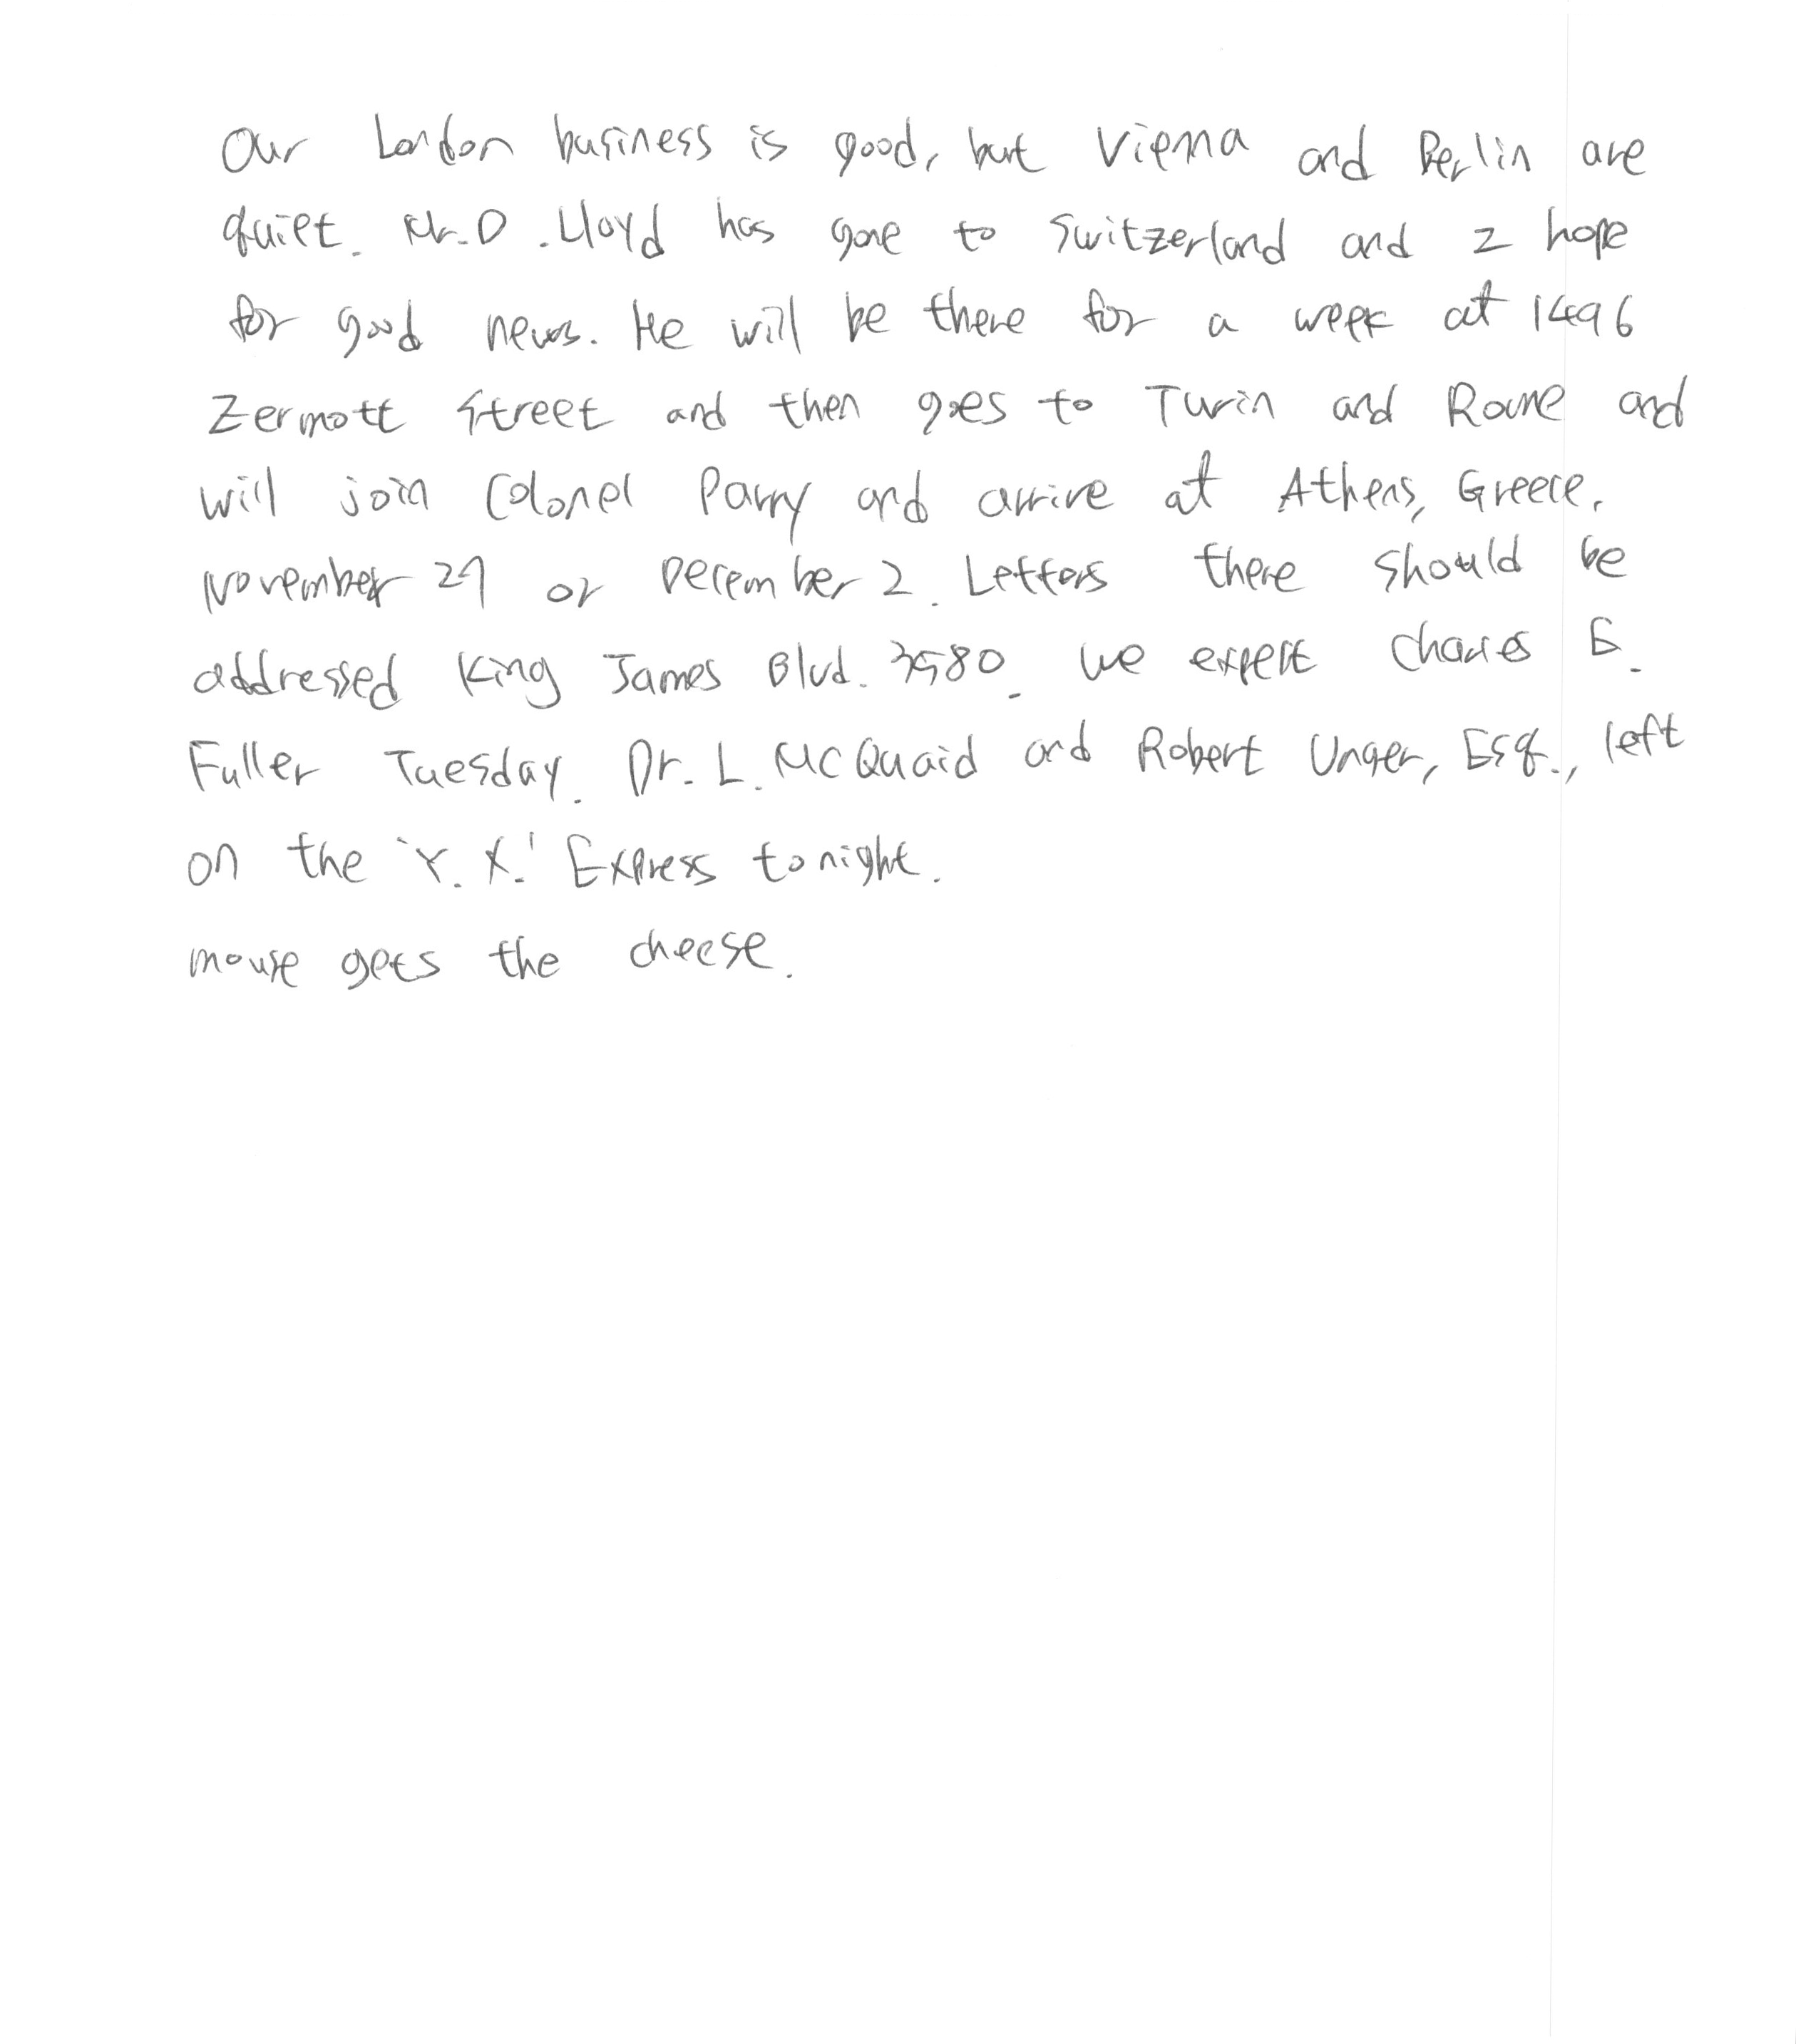 Our London business is good, but Vienna and Berlin are
quiet. Mr. D. Lloyd has gone to Switzerland and I hope
for good news. He will be there for a week at 1496
Zermott Street and then goes to Turin and Rome and
will join Colonel Parry and arrive at Athens, Greece,
November 27 or December 2. Letters there should be
addressed King James Blvd. 3580. We expect Charles E.
Fuller Tuesday. Dr. L. McQuaid and Robert Unger, Esq., left
on the 'Y. X.' Express tonight.
mouse gets the cheese.